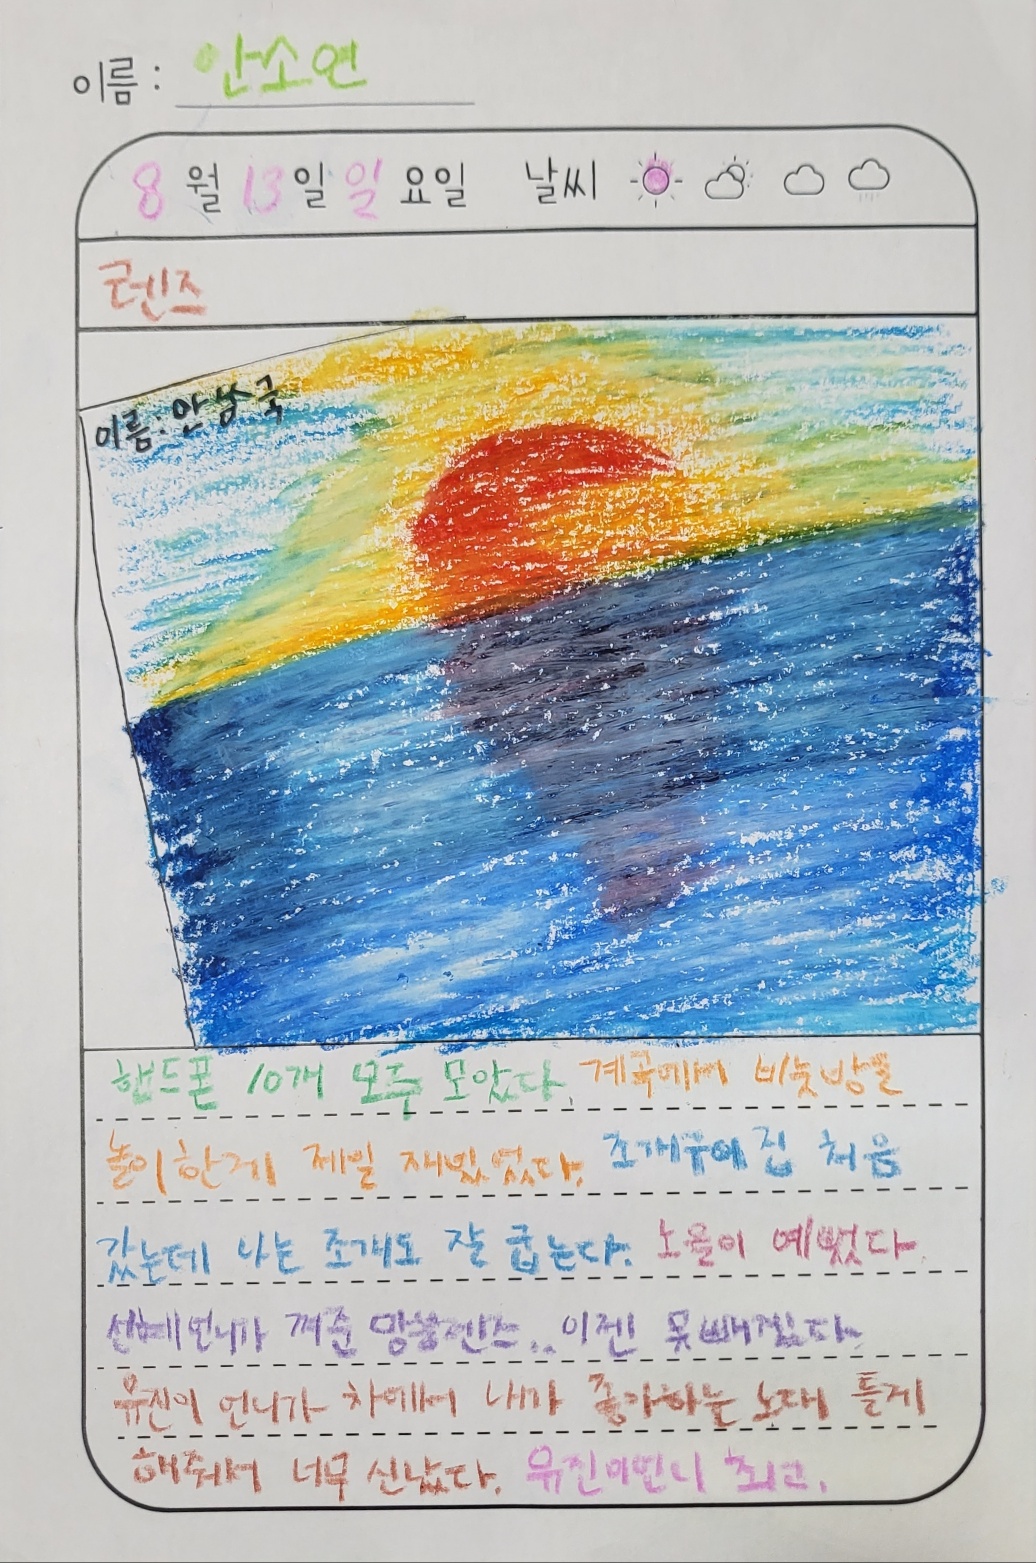 이름: 안소연
8월 13일 일요일 날씨
렌즈
이름: 안남국
핸드폰 10개 모두 모았다. 계곡에서 비눗방울
놀이한게 제일 재밌었다. 조개구이집 처음
갔는데 나는 조개도 잘 굽는다. 노을이 예뻤다.
선혜언니가 껴준 망울렌즈.. 이젠 못빼겠다.
유진이 언니가 차에서 내가 좋아하는 노래 틀게
해줘서 너무 신났다. 유진이언니 최고.